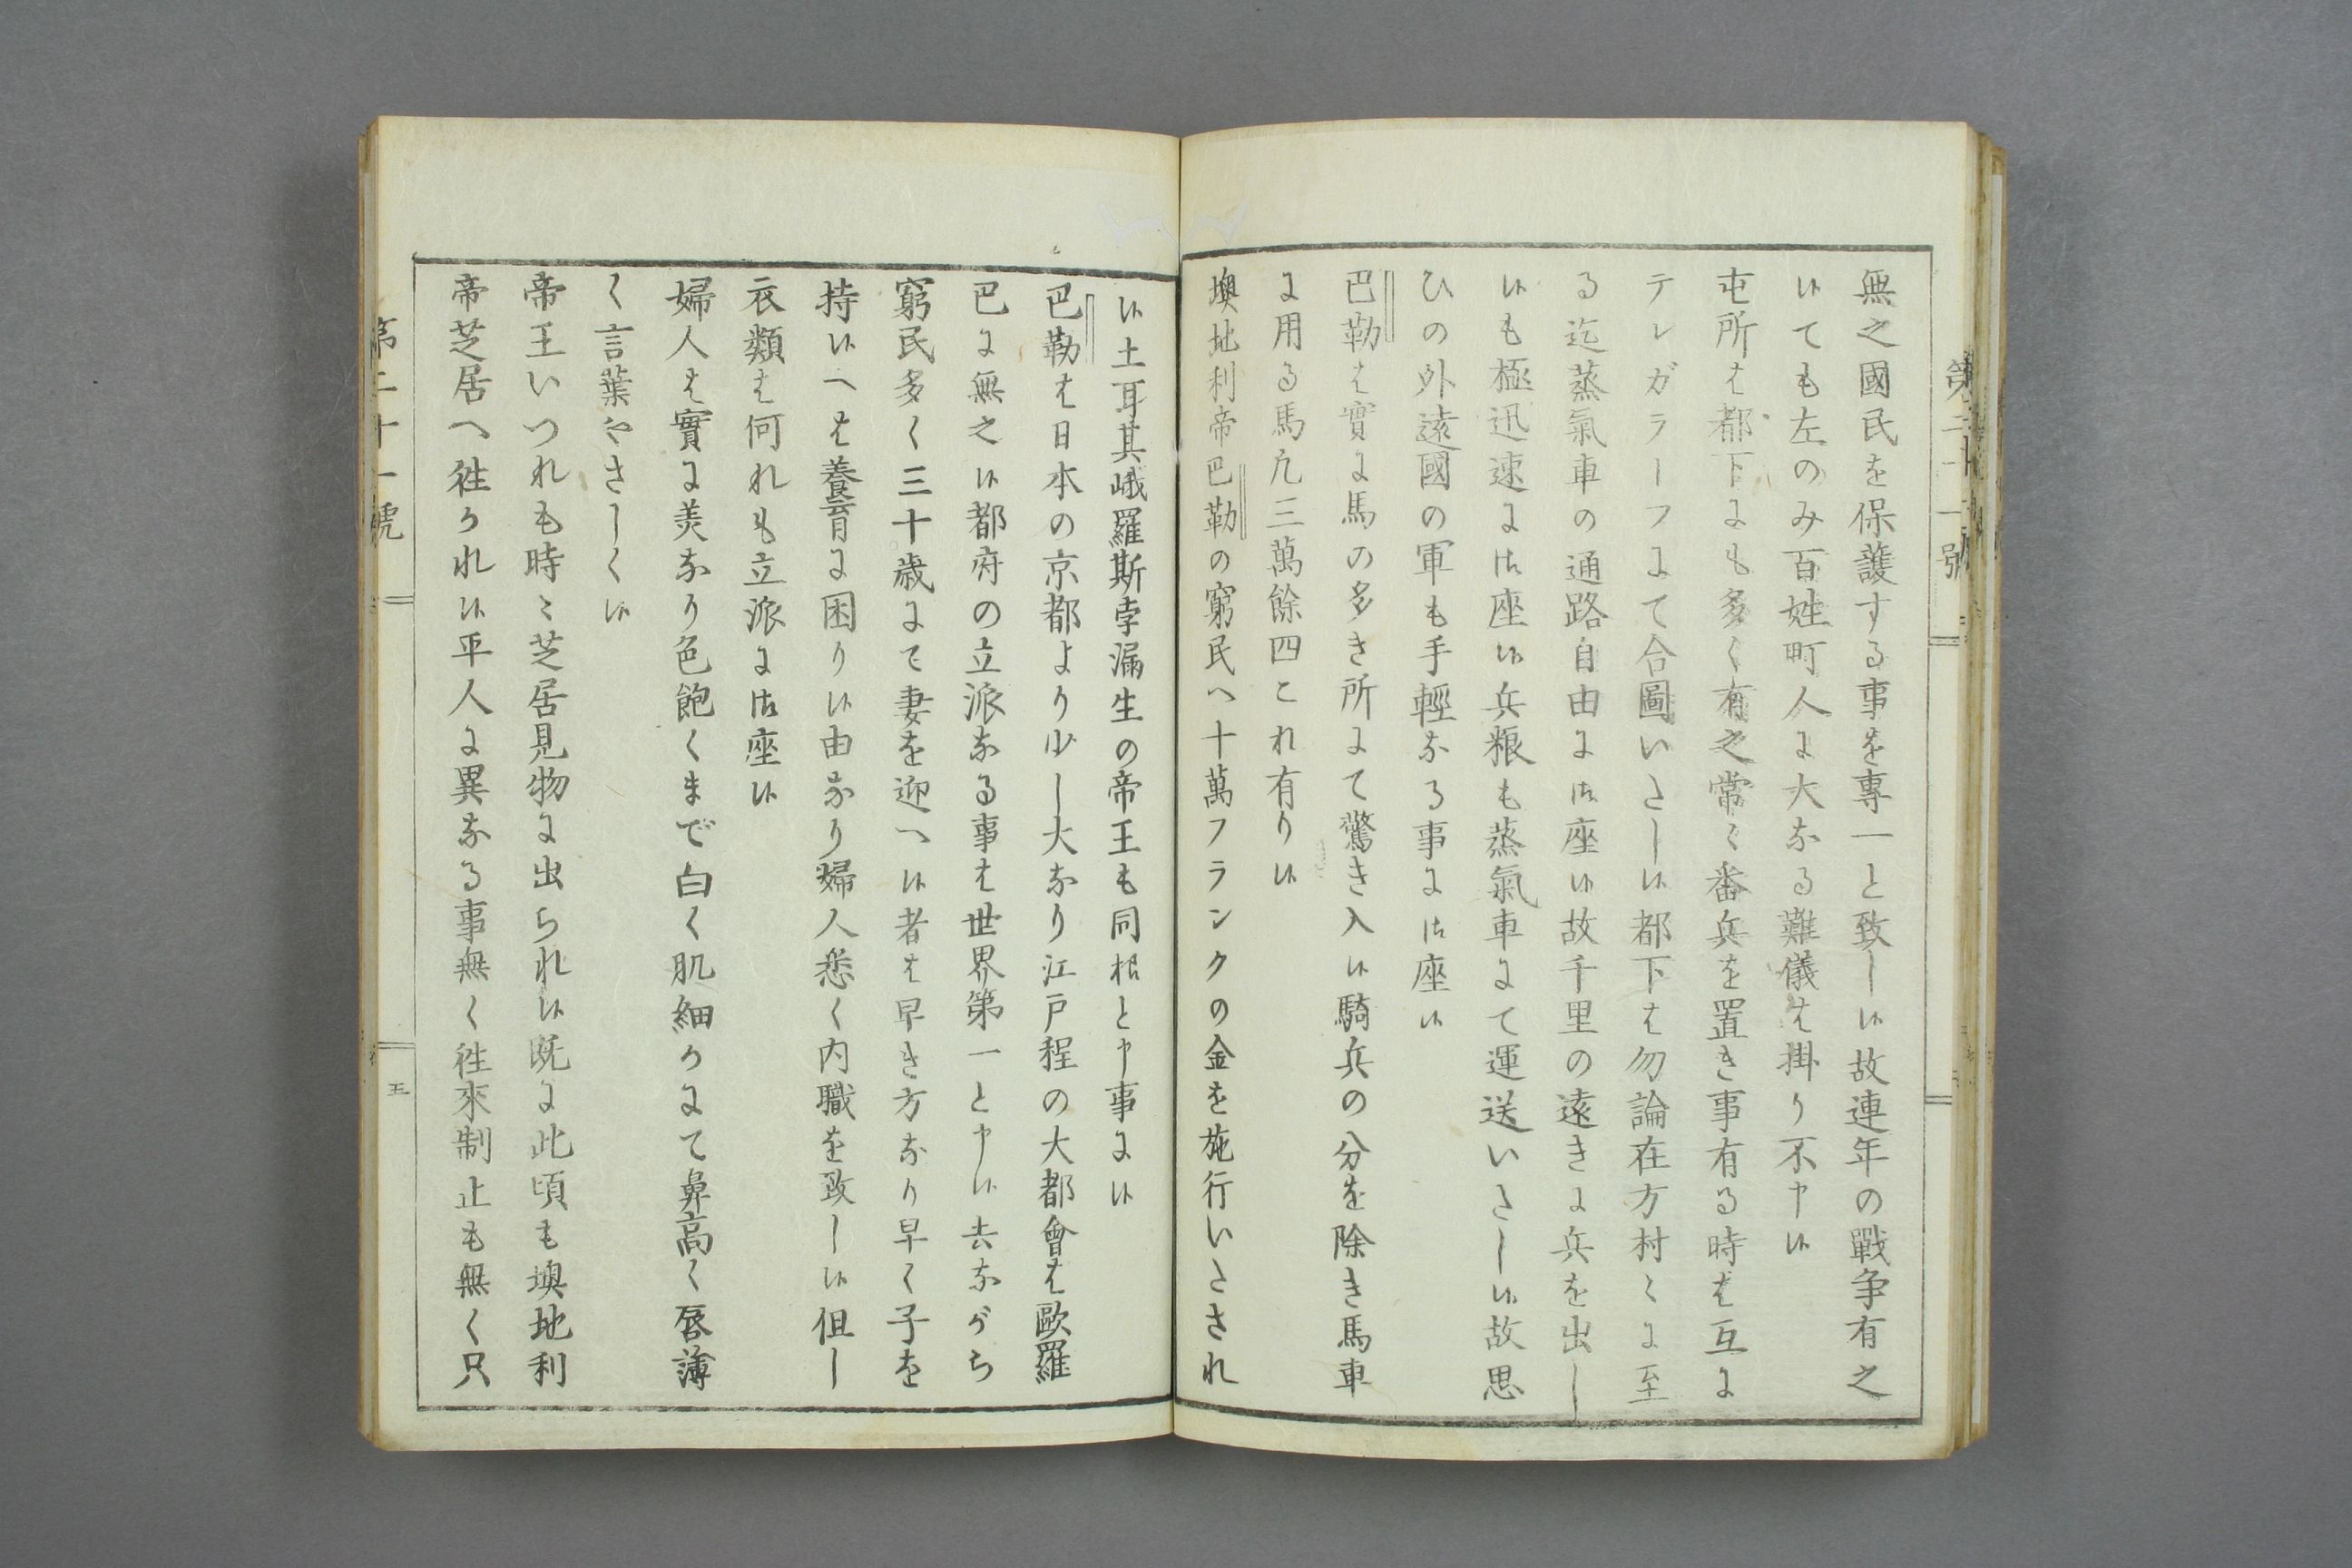 無之國民を保護する事を專一と致し候故連年の戰争有之
候ても左のみ百姓町人に大なる難儀は掛り不申候
屯所は都下にも多く有之常々番兵を置き事有る時は互に
テレガラーフにて合圖いたし候都下は勿論在方村々に至
る迄蒸氣車の通路自由に御座候故千里の遠きに兵を出し
候も極迅速に御座候兵粮も蒸氣車にて運送いたし候故思
ひの外遠國の軍も手輕なる事に御座候
巴勒は實に馬の多き所にて驚き入候騎兵の分を除き馬車
に用る馬凡三萬餘四これ有り候
墺地利帝巴勒の窮民へ十萬フランクの金を施行いたされ
候土耳其峨羅斯孛漏生の帝王も同様と申事に候
巴勒は日本の京都より少し大なり江戸程の大都會は歐羅
巴に無之候都府の立派なる事は世界第一と申候去ながら
窮民多く三十歳にて妻を迎へ候者は早き方なり早く子を
持候へは養育に困り候由なり婦人悉く内職を致し候但し
衣類は何れも立派に御座候
婦人は實に美なり色飽くまで白く肌細かにて鼻高く唇薄
く言葉やさしく候
帝王いつれも時々芝居見物に出られ候既に此頃も墺地利
帝芝居へ徃かれ候平人に異なる事無く徃來制止も無く只
第二十一號
五